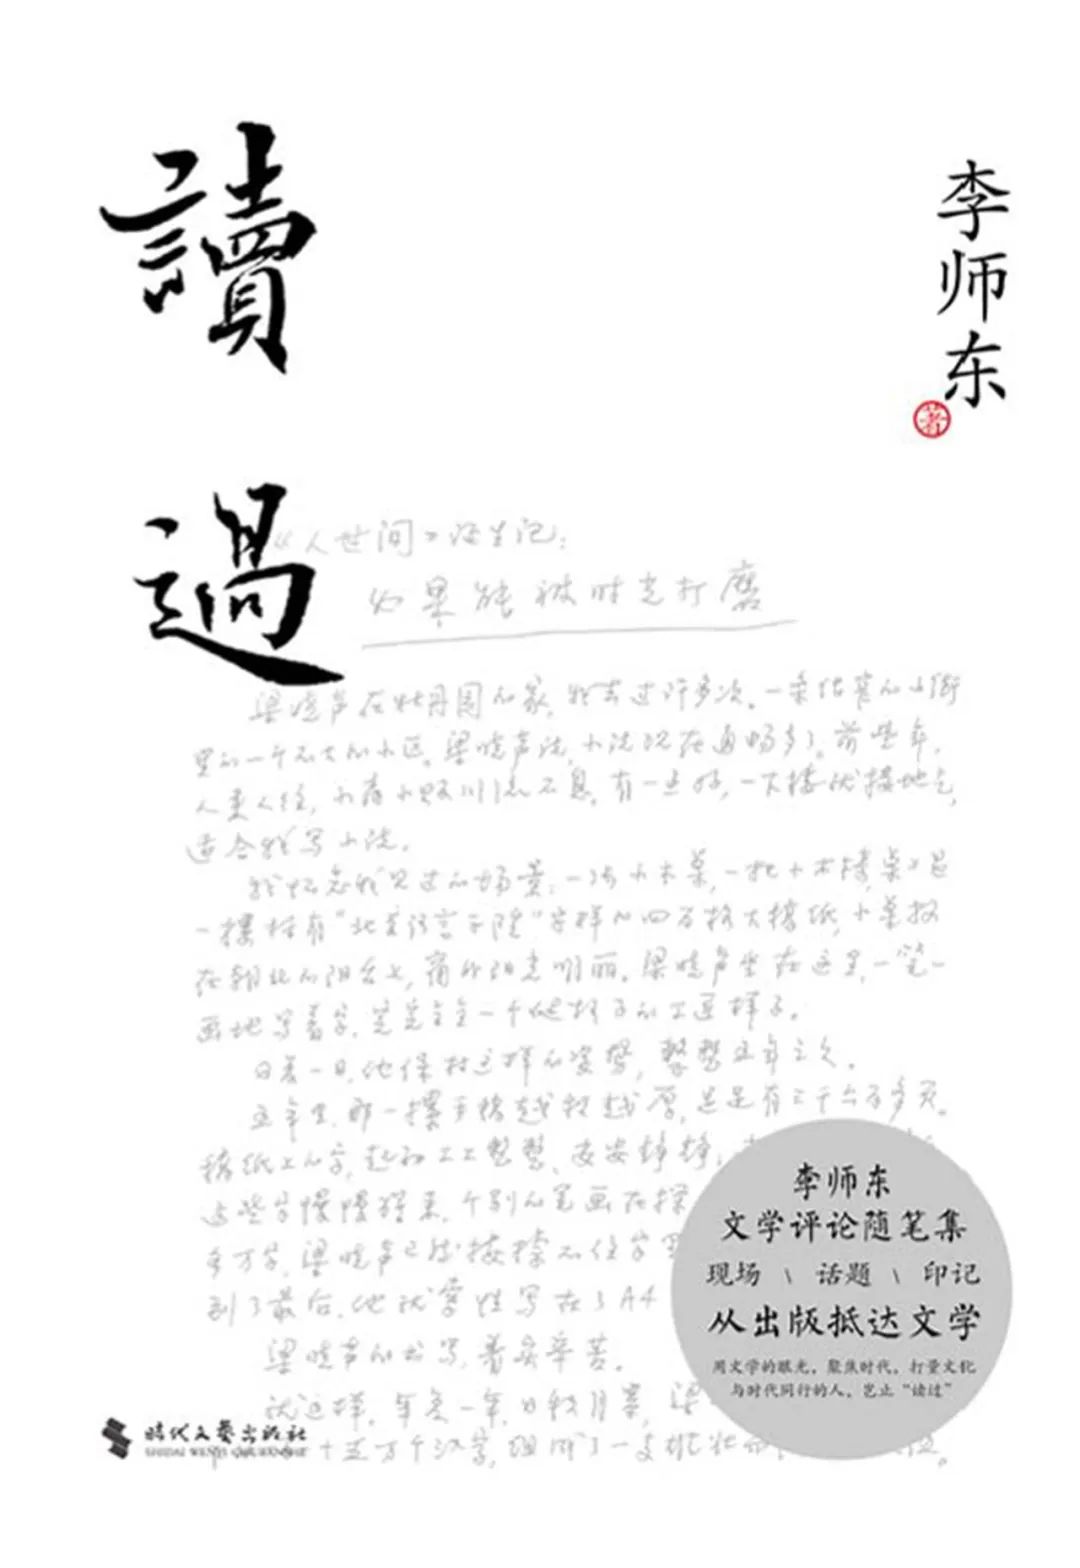 讀過
李师东
著
《人世间》诞生记：
必果能被时光打磨
梁晓声在牡丹园的家，我去过许多次。一条住宅的小街
里的一个不大的小区。梁晓声说，小说现在通畅多了。前些年，
人来人往，小商小贩川流不息。有一点好，一下楼就接地气，
适合我写小说。
我怀念我见过的场景：一张小木桌，一把小木椅，桌上是
一摞标有“北京语言学院”字样的四百格大稿纸，小桌放
在朝北的阳台上，窗外阳光明丽。梁晓声坐在这里，一笔一
画地写着字，完完全全一个做活的工匠样子。
日复一日，他保持这样的姿势，整整五年之久。
五年里，那一摞手稿越积越厚，足足有三千六百多页。
稿纸上的字，起初工工整整、安安静静，
这些字慢慢醒来，个别的笔画在
多万字，梁晓声已然按捺不住字里
到了最后，他就索性写在了A4
梁晓声的书写，着实辛苦。
就这样，年复一年，日积月累，梁
十五万个汉字，组成了一支
李师东
文学评论随笔集
现场 \ 话题 \ 印记
从出版抵达文学
用文学的眼光，聚焦时代，打量文化
与时代同行的人，岂止“读过”
时代文艺出版社
SHIDAI WENYI CHUBANSHE